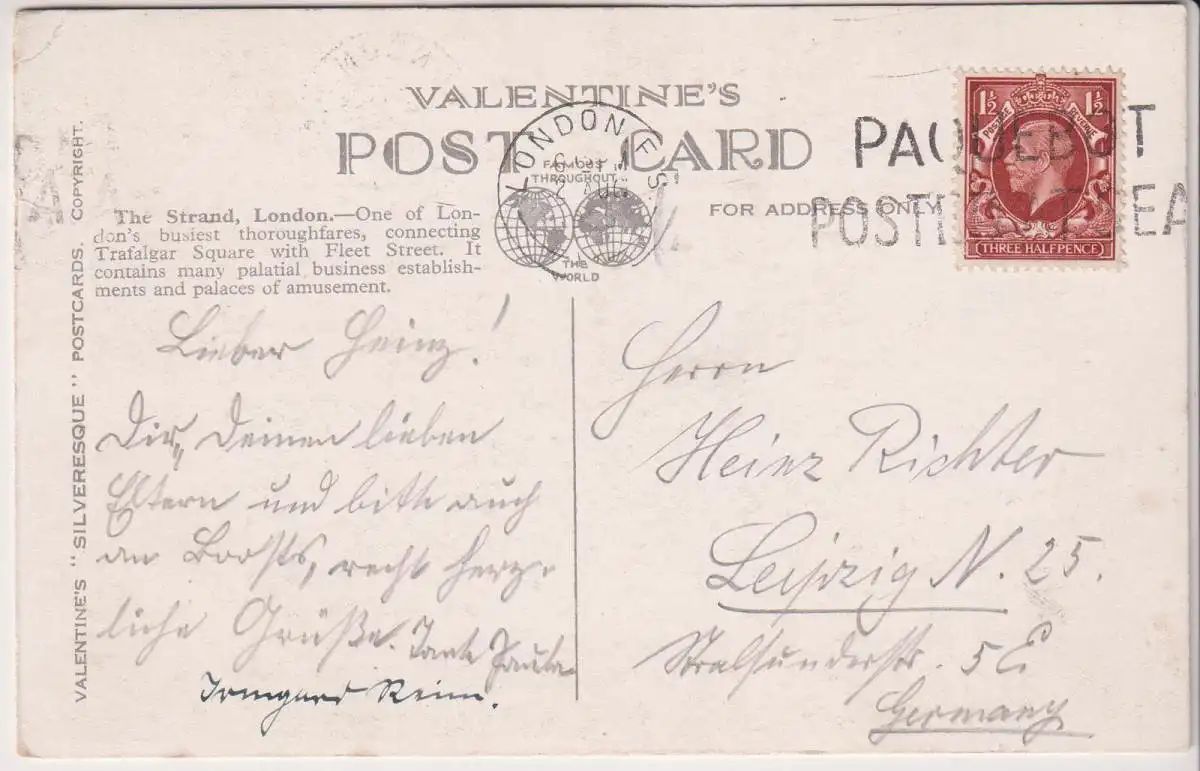 VALENTINE'S
POST CARD
FAMOUS
THROUGHOUT
THE
WORLD
FOR ADDRESS ONLY
LONDON F.S.
AUG
PAQUEBOT
POSTED AT SEA
POSTAGE REVENUE
1½ 1½
THREE HALFPENCE
VALENTINE'S "SILVERESQUE" POSTCARDS. COPYRIGHT.
The Strand, London.—One of Lon-
don's busiest thoroughfares, connecting
Trafalgar Square with Fleet Street. It
contains many palatial business establish-
ments and palaces of amusement.
Lieber Heinz!
Dir, Deinen lieben
Eltern und bitte auch
an Boosts, recht herz-
liche Grüße. Tante Paula
Irmgard Reim.
Herrn
Heinz Richter
Leipzig N. 25.
Stralsunderstr. 5 E
Germany